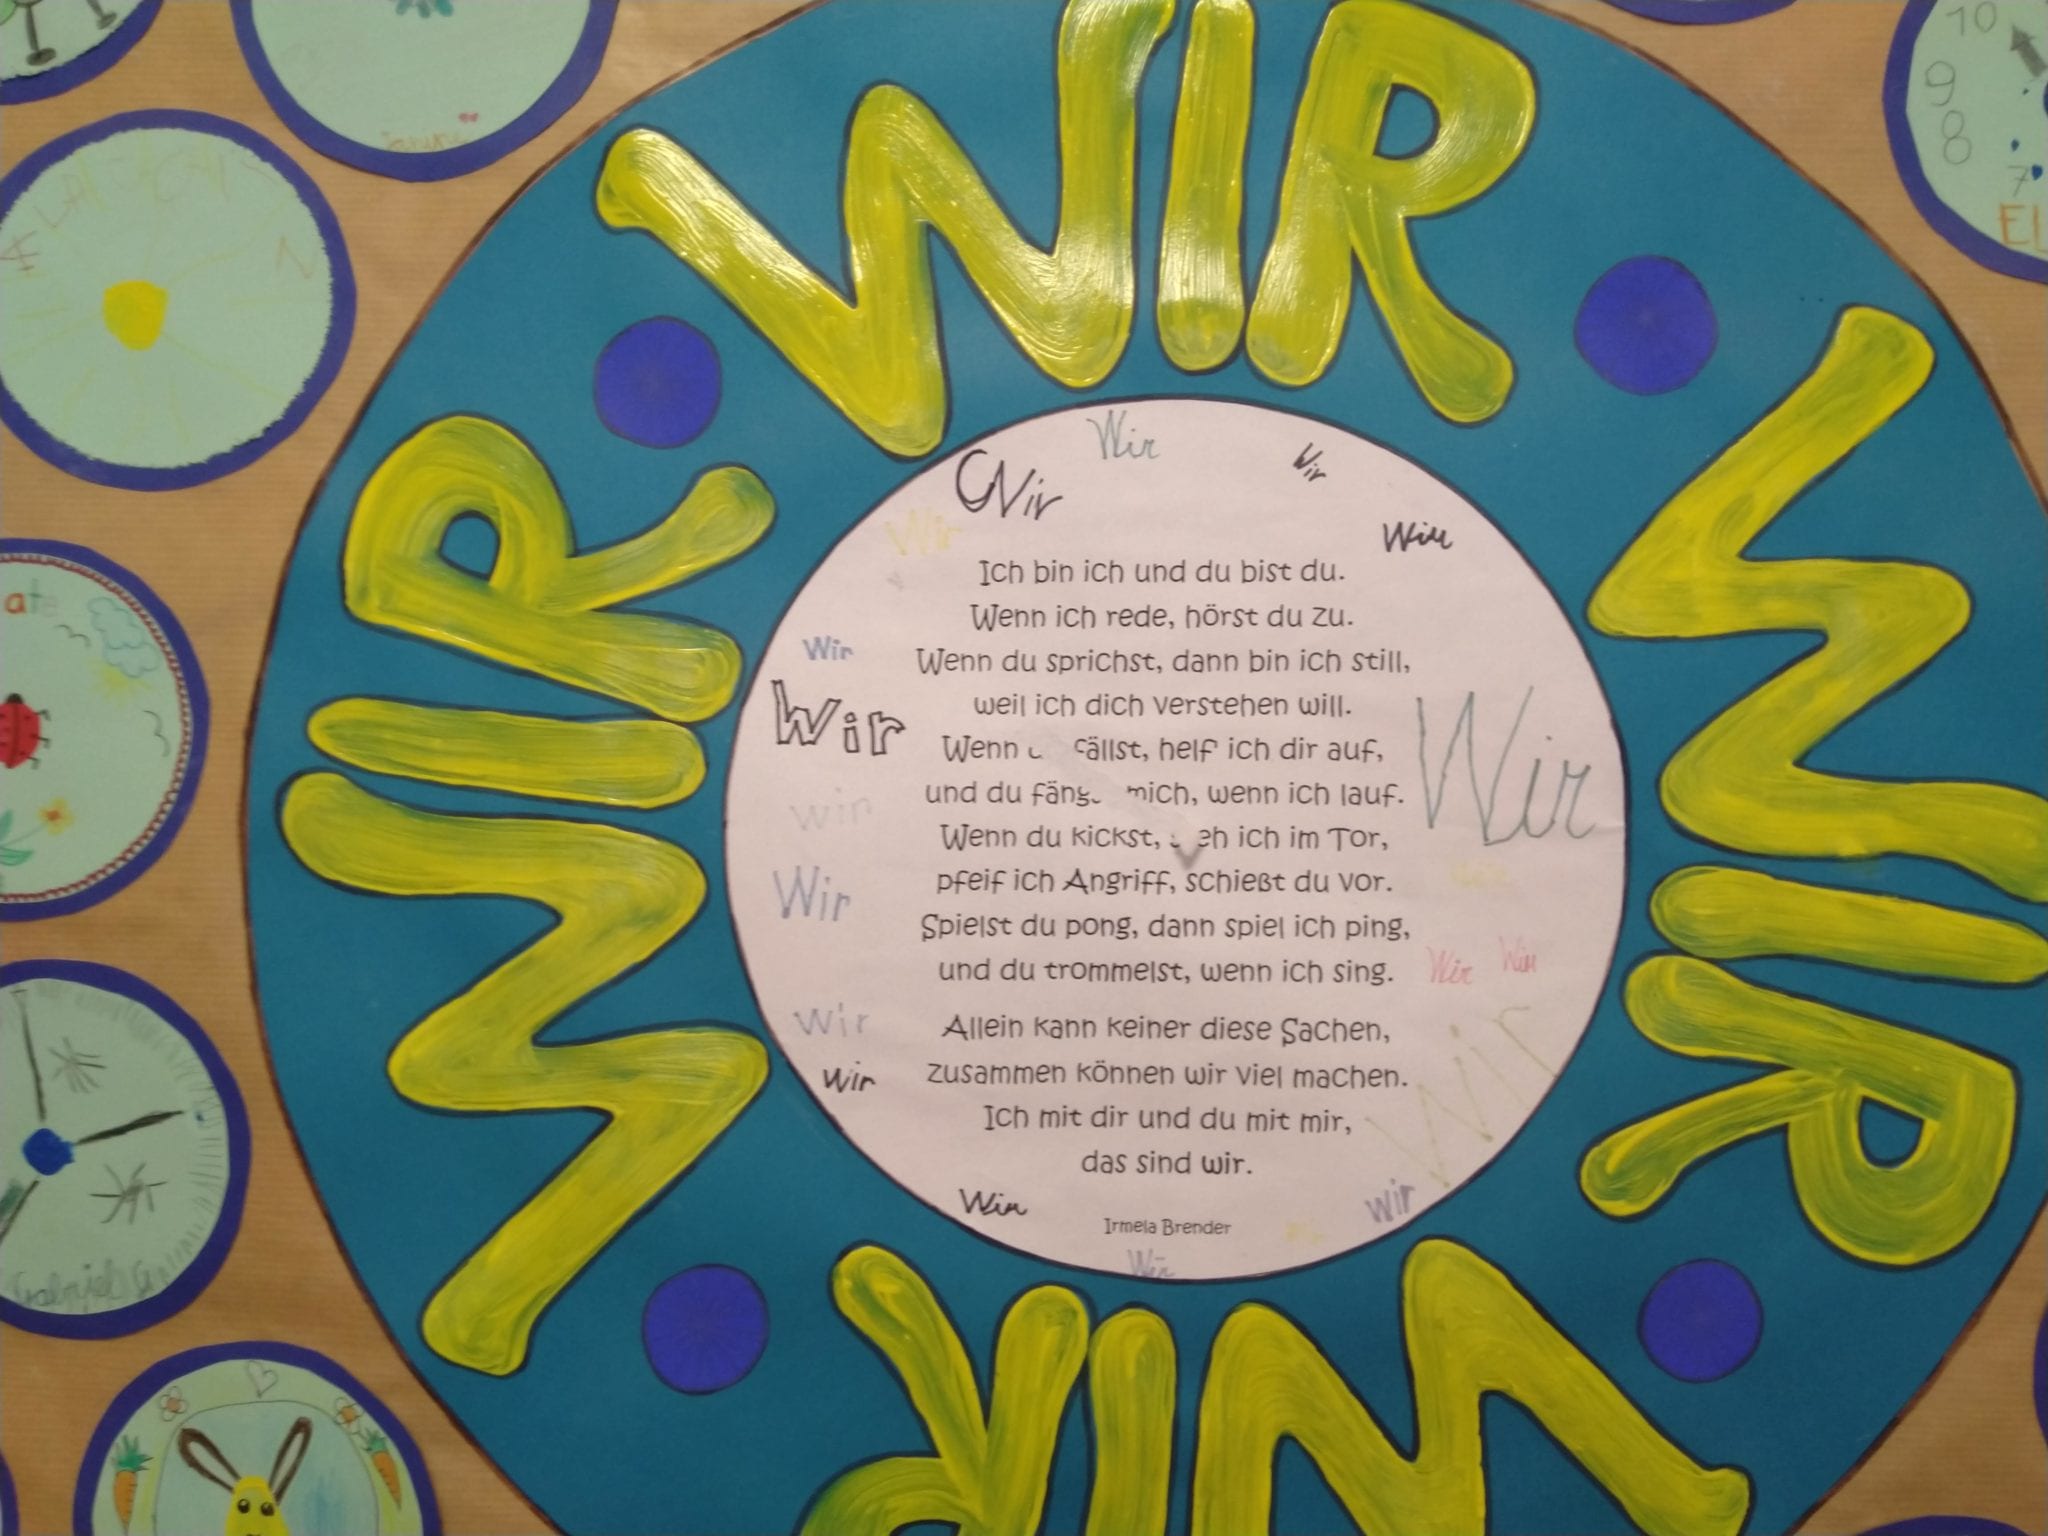 WIR
WIR
WIR
WIR
Wir
Wir
Wir
Wir
Wir
Ich bin ich und du bist du.
Wenn ich rede, hörst du zu.
Wenn du sprichst, dann bin ich still,
Wir
weil ich dich verstehen will.
Wir
Wenn fällst, helf ich dir auf,
und du mich, wenn ich lauf.
Wir
wir
Wenn du kickst, ich im Tor,
pfeif ich Angriff, schießt du vor.
Wir
Spielst du pong, dann spiel ich ping,
und du trommelst, wenn ich sing.
Wir Wir
Wir
Allein kann keiner diese Sachen,
Wir
zusammen können wir viel machen.
Wir
Ich mit dir und du mit mir,
das sind wir.
Wir
Wir
Irmela Brender
Wir
10
9
8
7
EL
ate
Gabriel